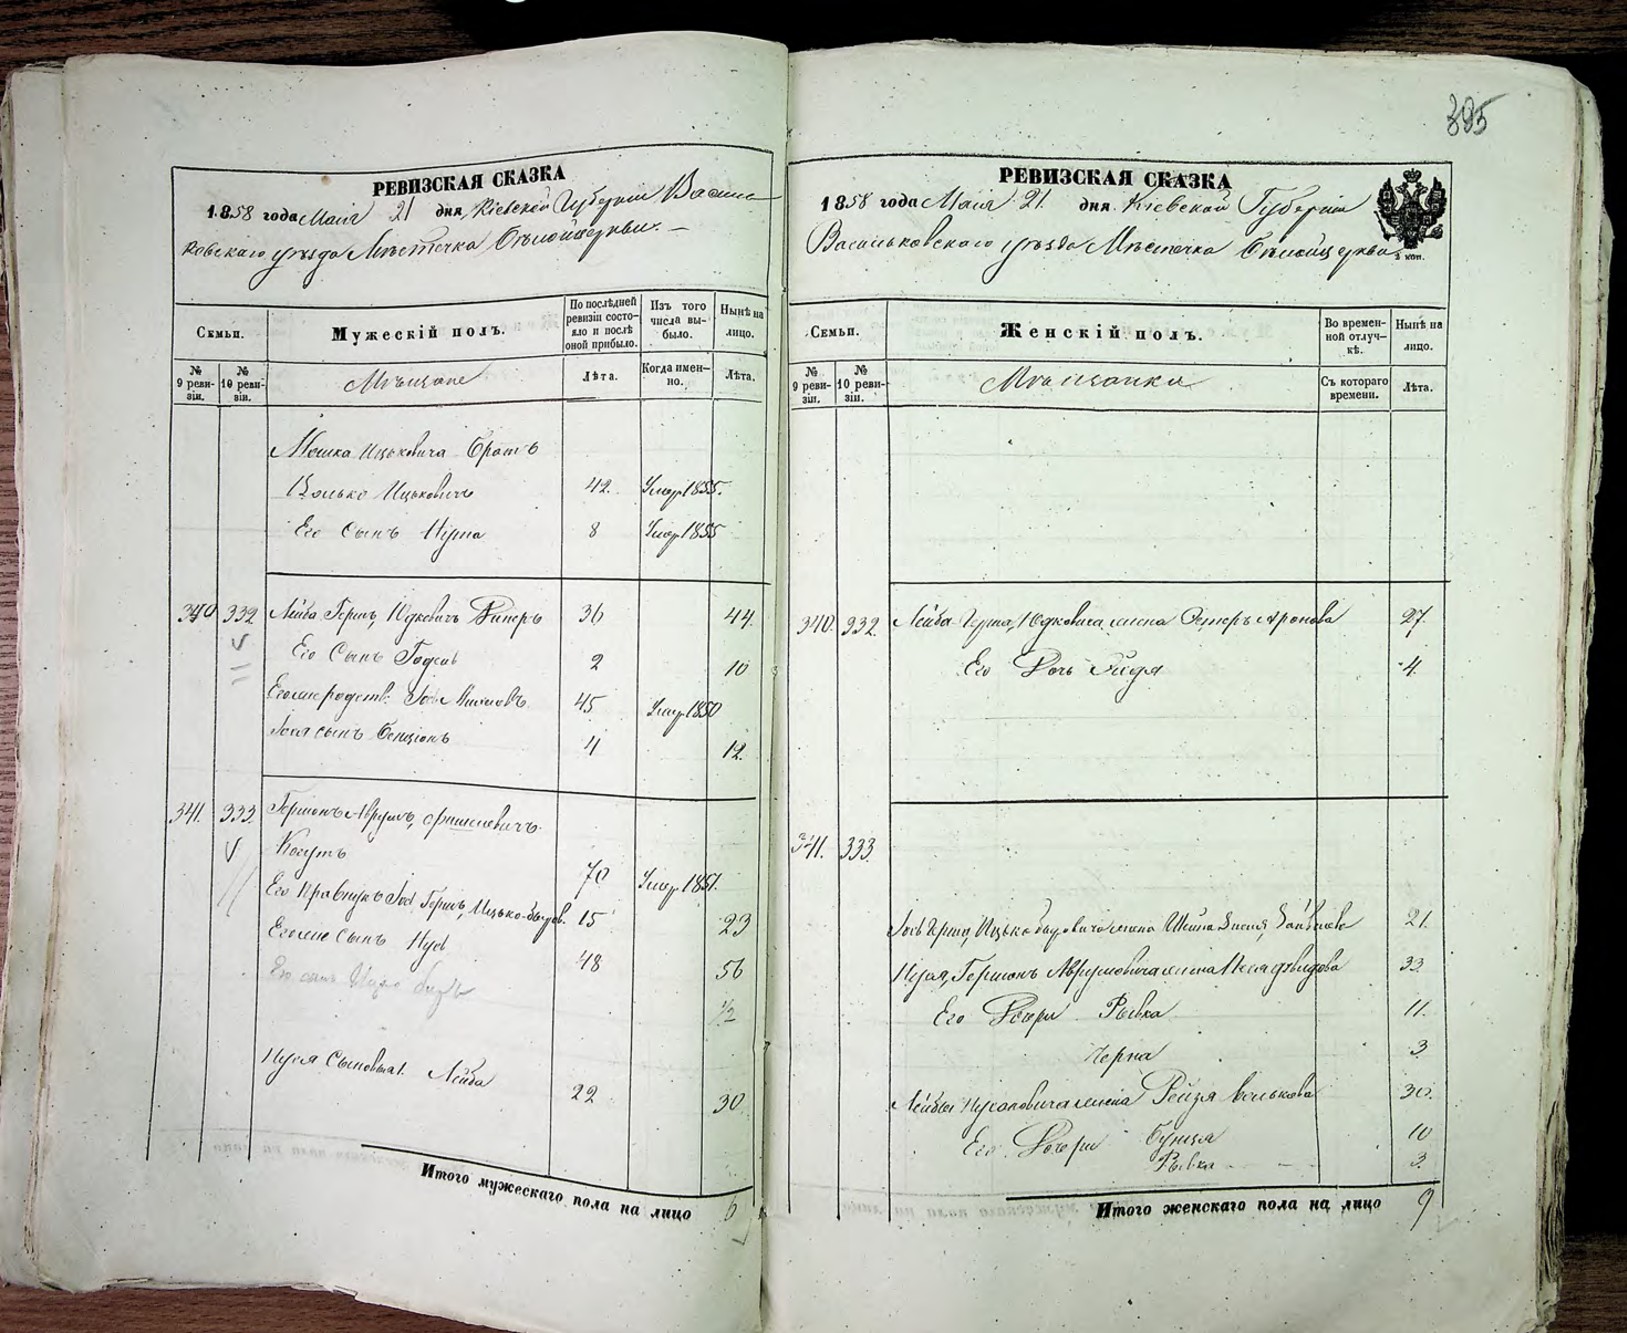 395
РЕВИЗСКАЯ СКАЗКА
1858 года Маія 21 дня, Кіевской Губерніи Василь-
ковскаго уѣзда Мѣстечка Бѣлойцеркви. —
Семьи.
Мужескій полъ.
По послѣдней ревизіи состояло и послѣ оной прибыло.
Изъ того числа выбыло.
Нынѣ на лицо.
№ 9 ревизіи.
№ 10 ревизіи.
Мѣщане
Лѣта.
Когда именно.
Лѣта.
Мошка Ицьковича Братъ
Волько Ицьковичъ 42. Умер. 1855.
Его Сынъ 8 Умер. 1855
340 332 Лейба Гершъ, Юдковичъ 36 44.
Его Сынъ 2 10
45 Умер. 1850
сынъ Бенціонъ 4 12.
341. 333. Гершонъ Аврумъ,
Когутъ 70 Умер. 1851.
Его Правнукъ Іос Гершъ, Ицько-Быдов. 15 23
Егоже Сынъ Нусъ 48 56
Его сынъ Ицко 1/2
Нуся Сыновья 1. Лейба 22 30
Итого мужескаго пола на лицо 6
РЕВИЗСКАЯ СКАЗКА
1858 года Маія 21. дня. Кіевской Губерніи
Васильковскаго уѣзда Мѣстечка Бѣлойцеркви
Семьи.
Женскій полъ.
Во временной отлучкѣ.
Нынѣ на лицо.
№ 9 ревизіи.
№ 10 ревизіи.
Мѣщанки
Съ котораго времени.
Лѣта.
340. 332. Лейба Герша, Юдковича жена Эстеръ Аронова 27.
Его Дочь 4.
341. 333.
Ицько жена Шейна 21.
Нуся, Гершонъ Аврумовича жена 33.
Его Дочери Рывка 11.
Черна 3
Лейбы Нусоновича жена Рейзя Волькова 30.
Его Дочери Бунця 10
Рывка 3.
Итого женскаго пола на лицо 9